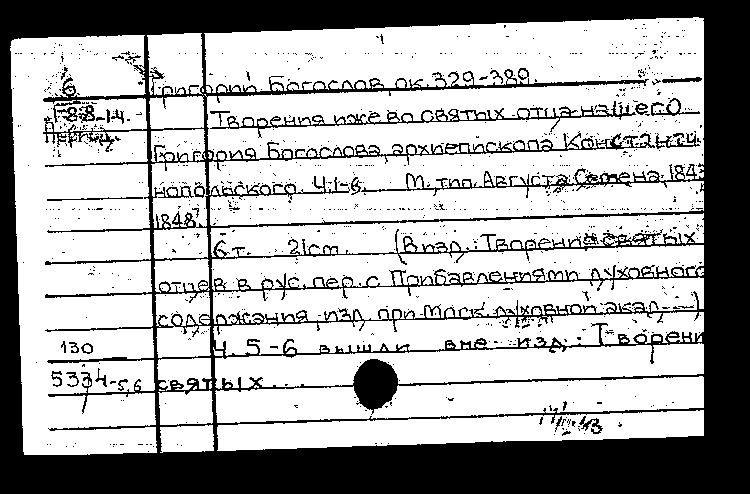 6
Григорий Богослов, ок. 329-389.
88-14.
Период.
Творения иже во святых отца нашего
Григория Богослова, архиепископа Константи
нопольского. Ч. 1-6. М., тип. Августа Семена, 1843
1848.
6 т. 21cm. (В изд.: Творения святых
отцев в рус. пер. с Прибавлениями духовного
содержания, изд. при Моск. духовной акад. ---)
130
Ч. 5-6 вышли вне изд.: Творени
5334-5,6 святых...